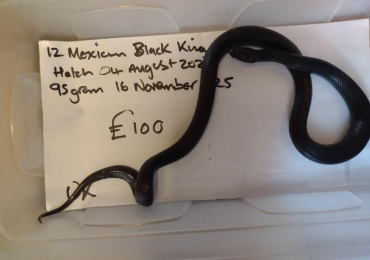 12 Mexican Black King
Hatch 04 August 202
95gram 16 November 25
£100